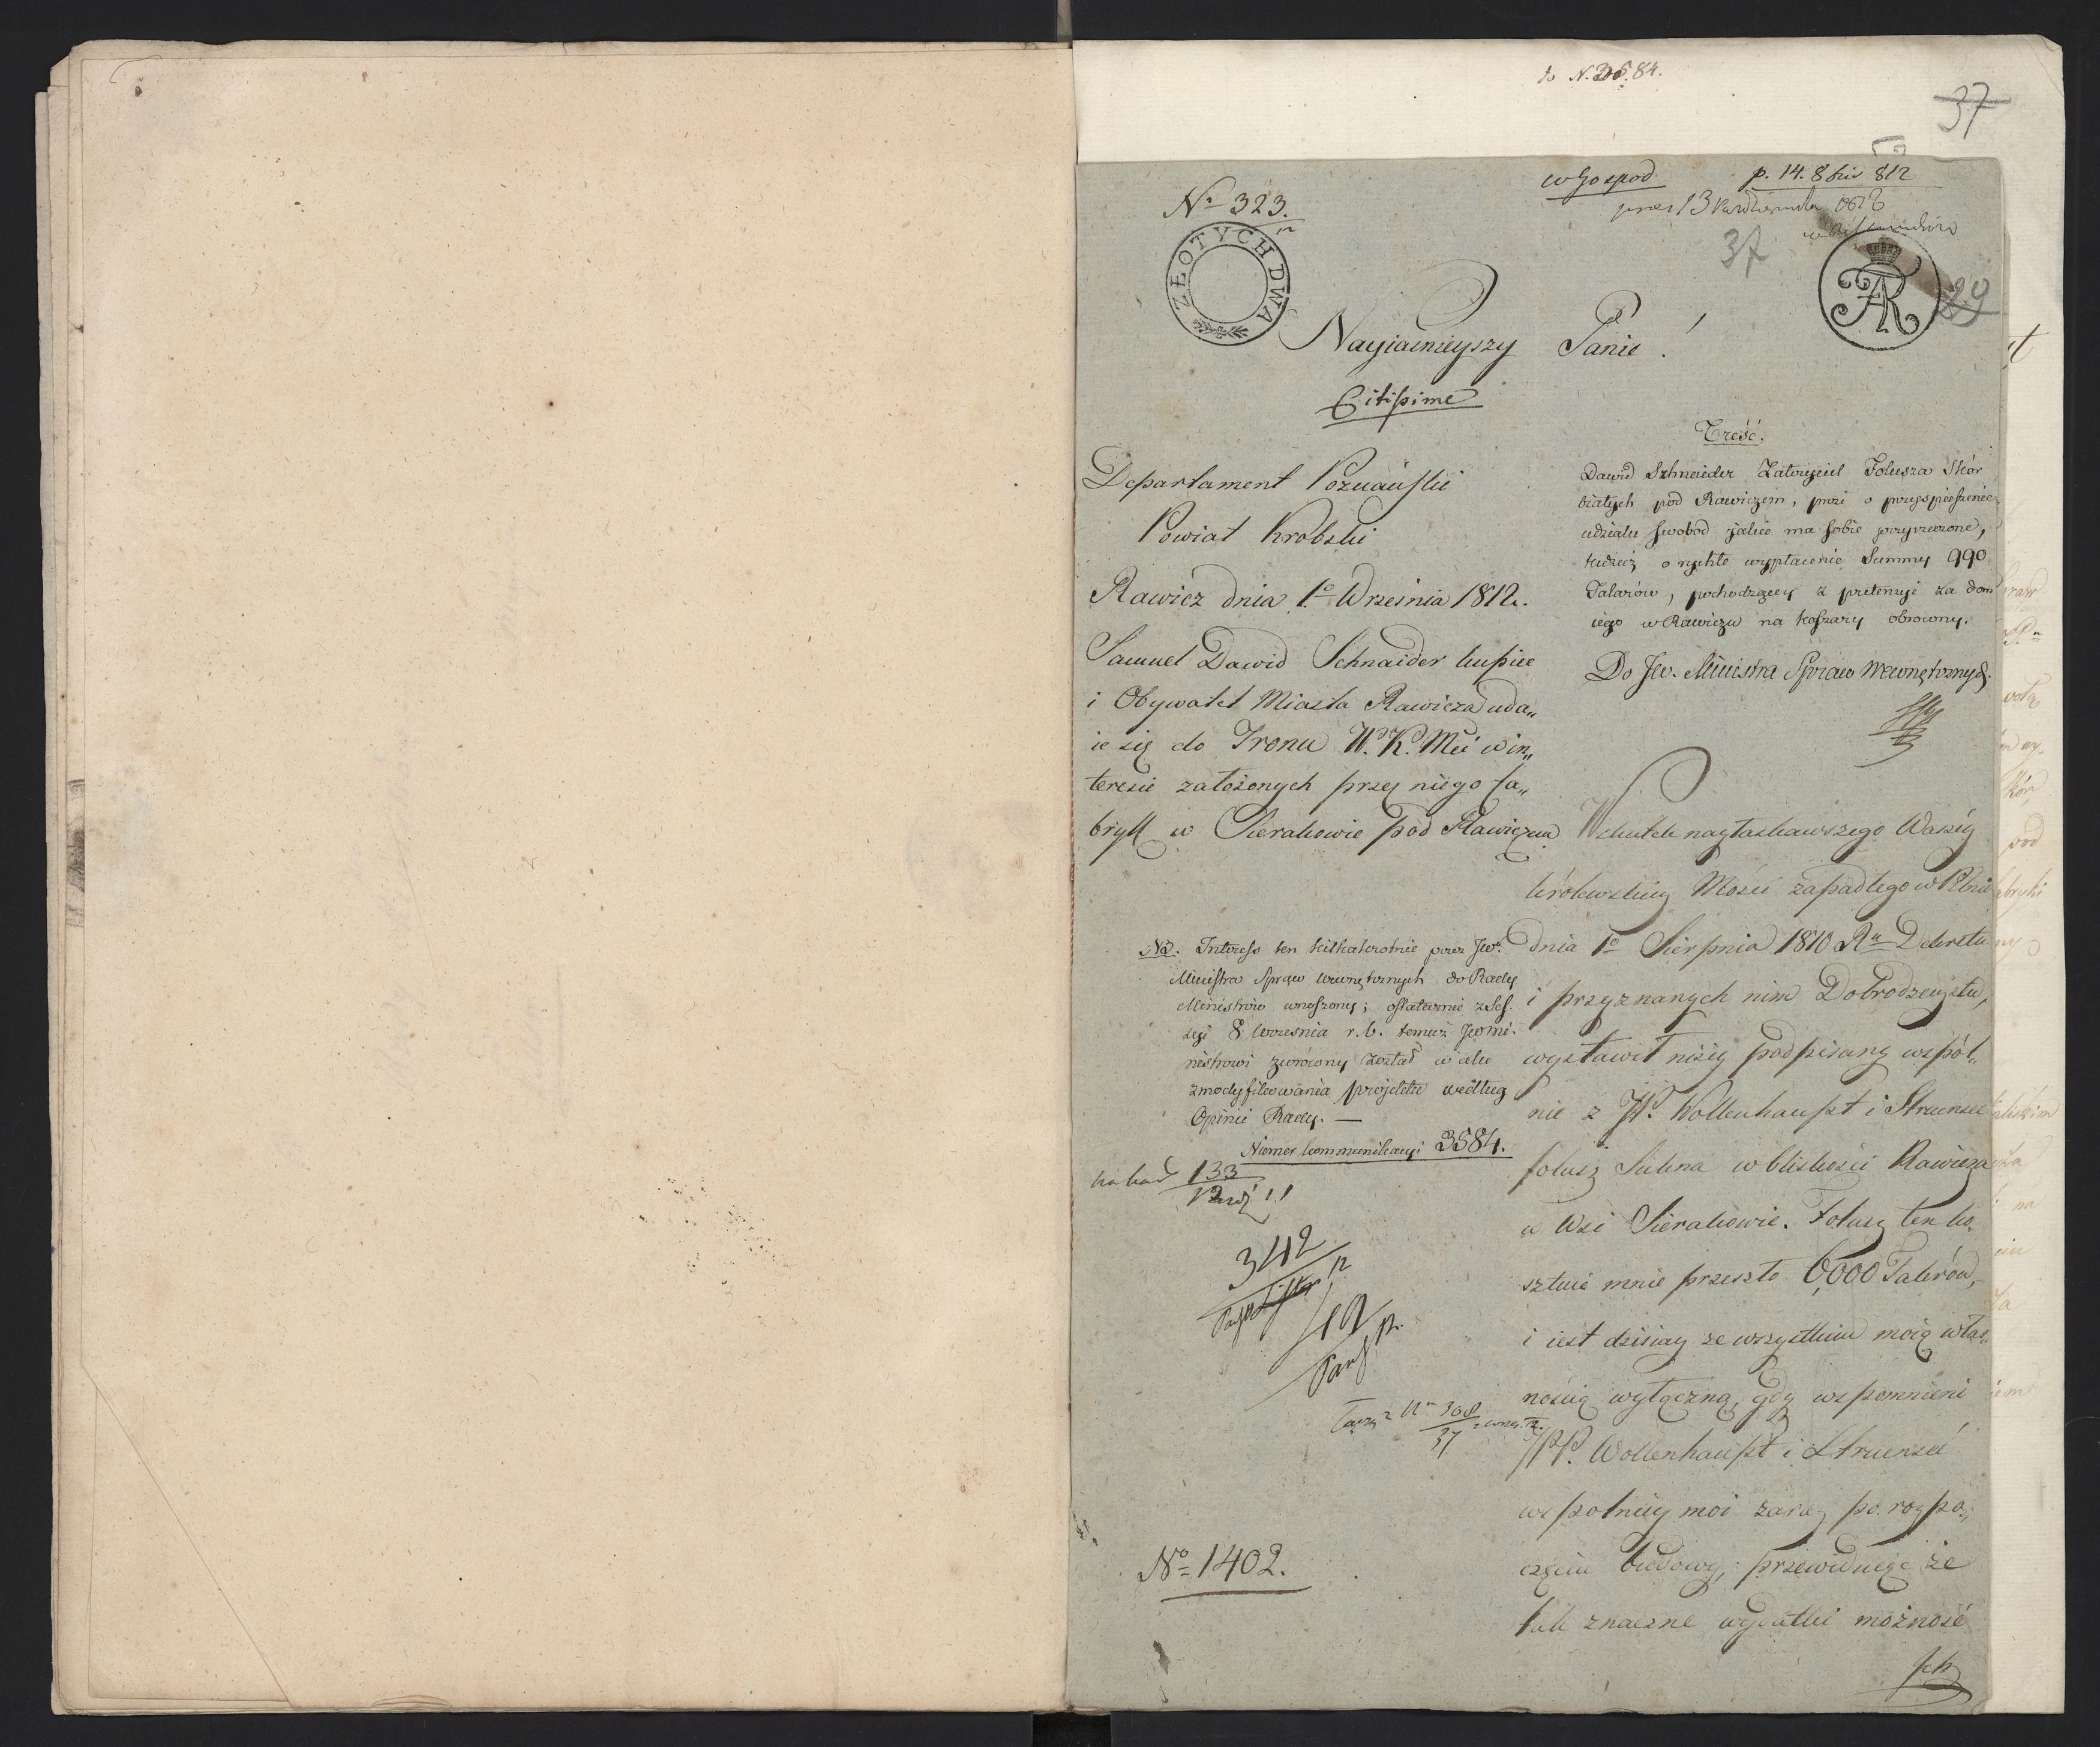 do N. 3584.
37
N° 323.
w Gospod
p. 14. 8bris 812
pres 13 Października 1812
37
29
ZŁOTYCH DWA
FAR
Nayiaśnieyszy Panie!
Citissime
Departament Poznański
Powiat Krobski
Rawicz dnia 1° Września 1812.
Samuel Dawid Schnaider kupiec
i Obywatel Miasta Rawicza uda„
ie się do Tronu W. K. Mci w in„
teresie założonych przez niego fa„
bryk w Sierakowie pod Rawiczem
Treść.
Dawid Schneider Założyciel Folusza Skór
białych pod Rawiczem, prosi o przyspieszenie
udziału swobod jakie ma sobie przyrzeczone,
tudzież o rychłe wypłacenie Summy 990
Talarów, pochodzącey z pretensyi za dom
iego w Rawiczu na koszary obrocony.
Do JW. Ministra Spraw Wewnętrznych.
NB. Interess ten kilkakrotnie przez JW.
Ministra Spraw Wewnętrznych do Rady
Ministrów wnoszony; ostatecznie z Ses.
syi 8 Września r. b. temuż JW Mi.
nistrowi zwrócony został w celu
zmodyfikowania projektu według
Opinii Rady. —
Numer kommunikacyi 3584.
133
342
12
N° 1402.
Wskutek nayłaskawszego Waszéy
królewskiey Mości zapadłego w Pilnie
dnia 1° Sierpnia 1810 R° Dekretu
i przyznanych nim Dobrodzieystw,
wystawił niżéy podpisany wspól„
nie z JP. Wollenhaupt i Struensee
folusz Sukna w bliskości Rawicza
w Wsi Sierakowie. Folusz ten ko„
sztuie mnie przeszło 6,000 Talerów,
i iest dzisiay ze wszystkiem moią włas„
nością wyłączną, gdy wspomnieni
JPP. Wollenhaupt i Struensee
wspolnicy moi zaraz po rozpo„
częciu budowy, przewiduiąc że
tak znaczne wydatki możność